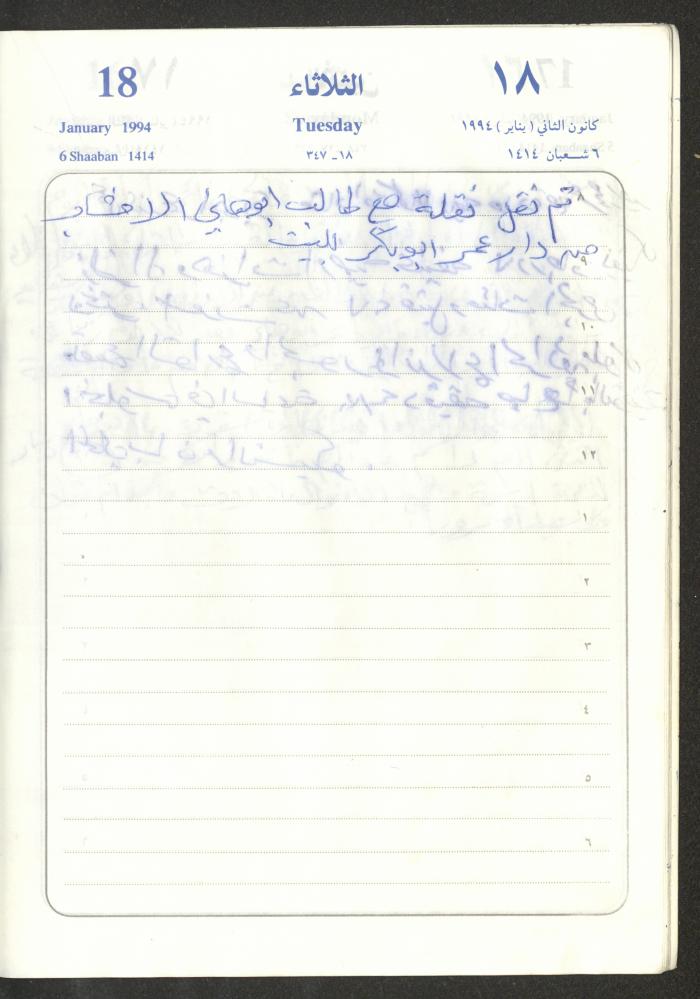 18 الثلاثاء ١٨
January 1994 Tuesday كانون الثاني ( يناير ) ١٩٩٤
6 Shaaban 1414 ١٨ _ ٣٤٧ ٦ شعبان ١٤١٤
٨ تم نقل نقلة مع طالب ابوهاني الاخشاب
من دار عمر ابوبكر للبيت
٩
١٠
١١
١٢
١
٢
٣
٤
٥
٦